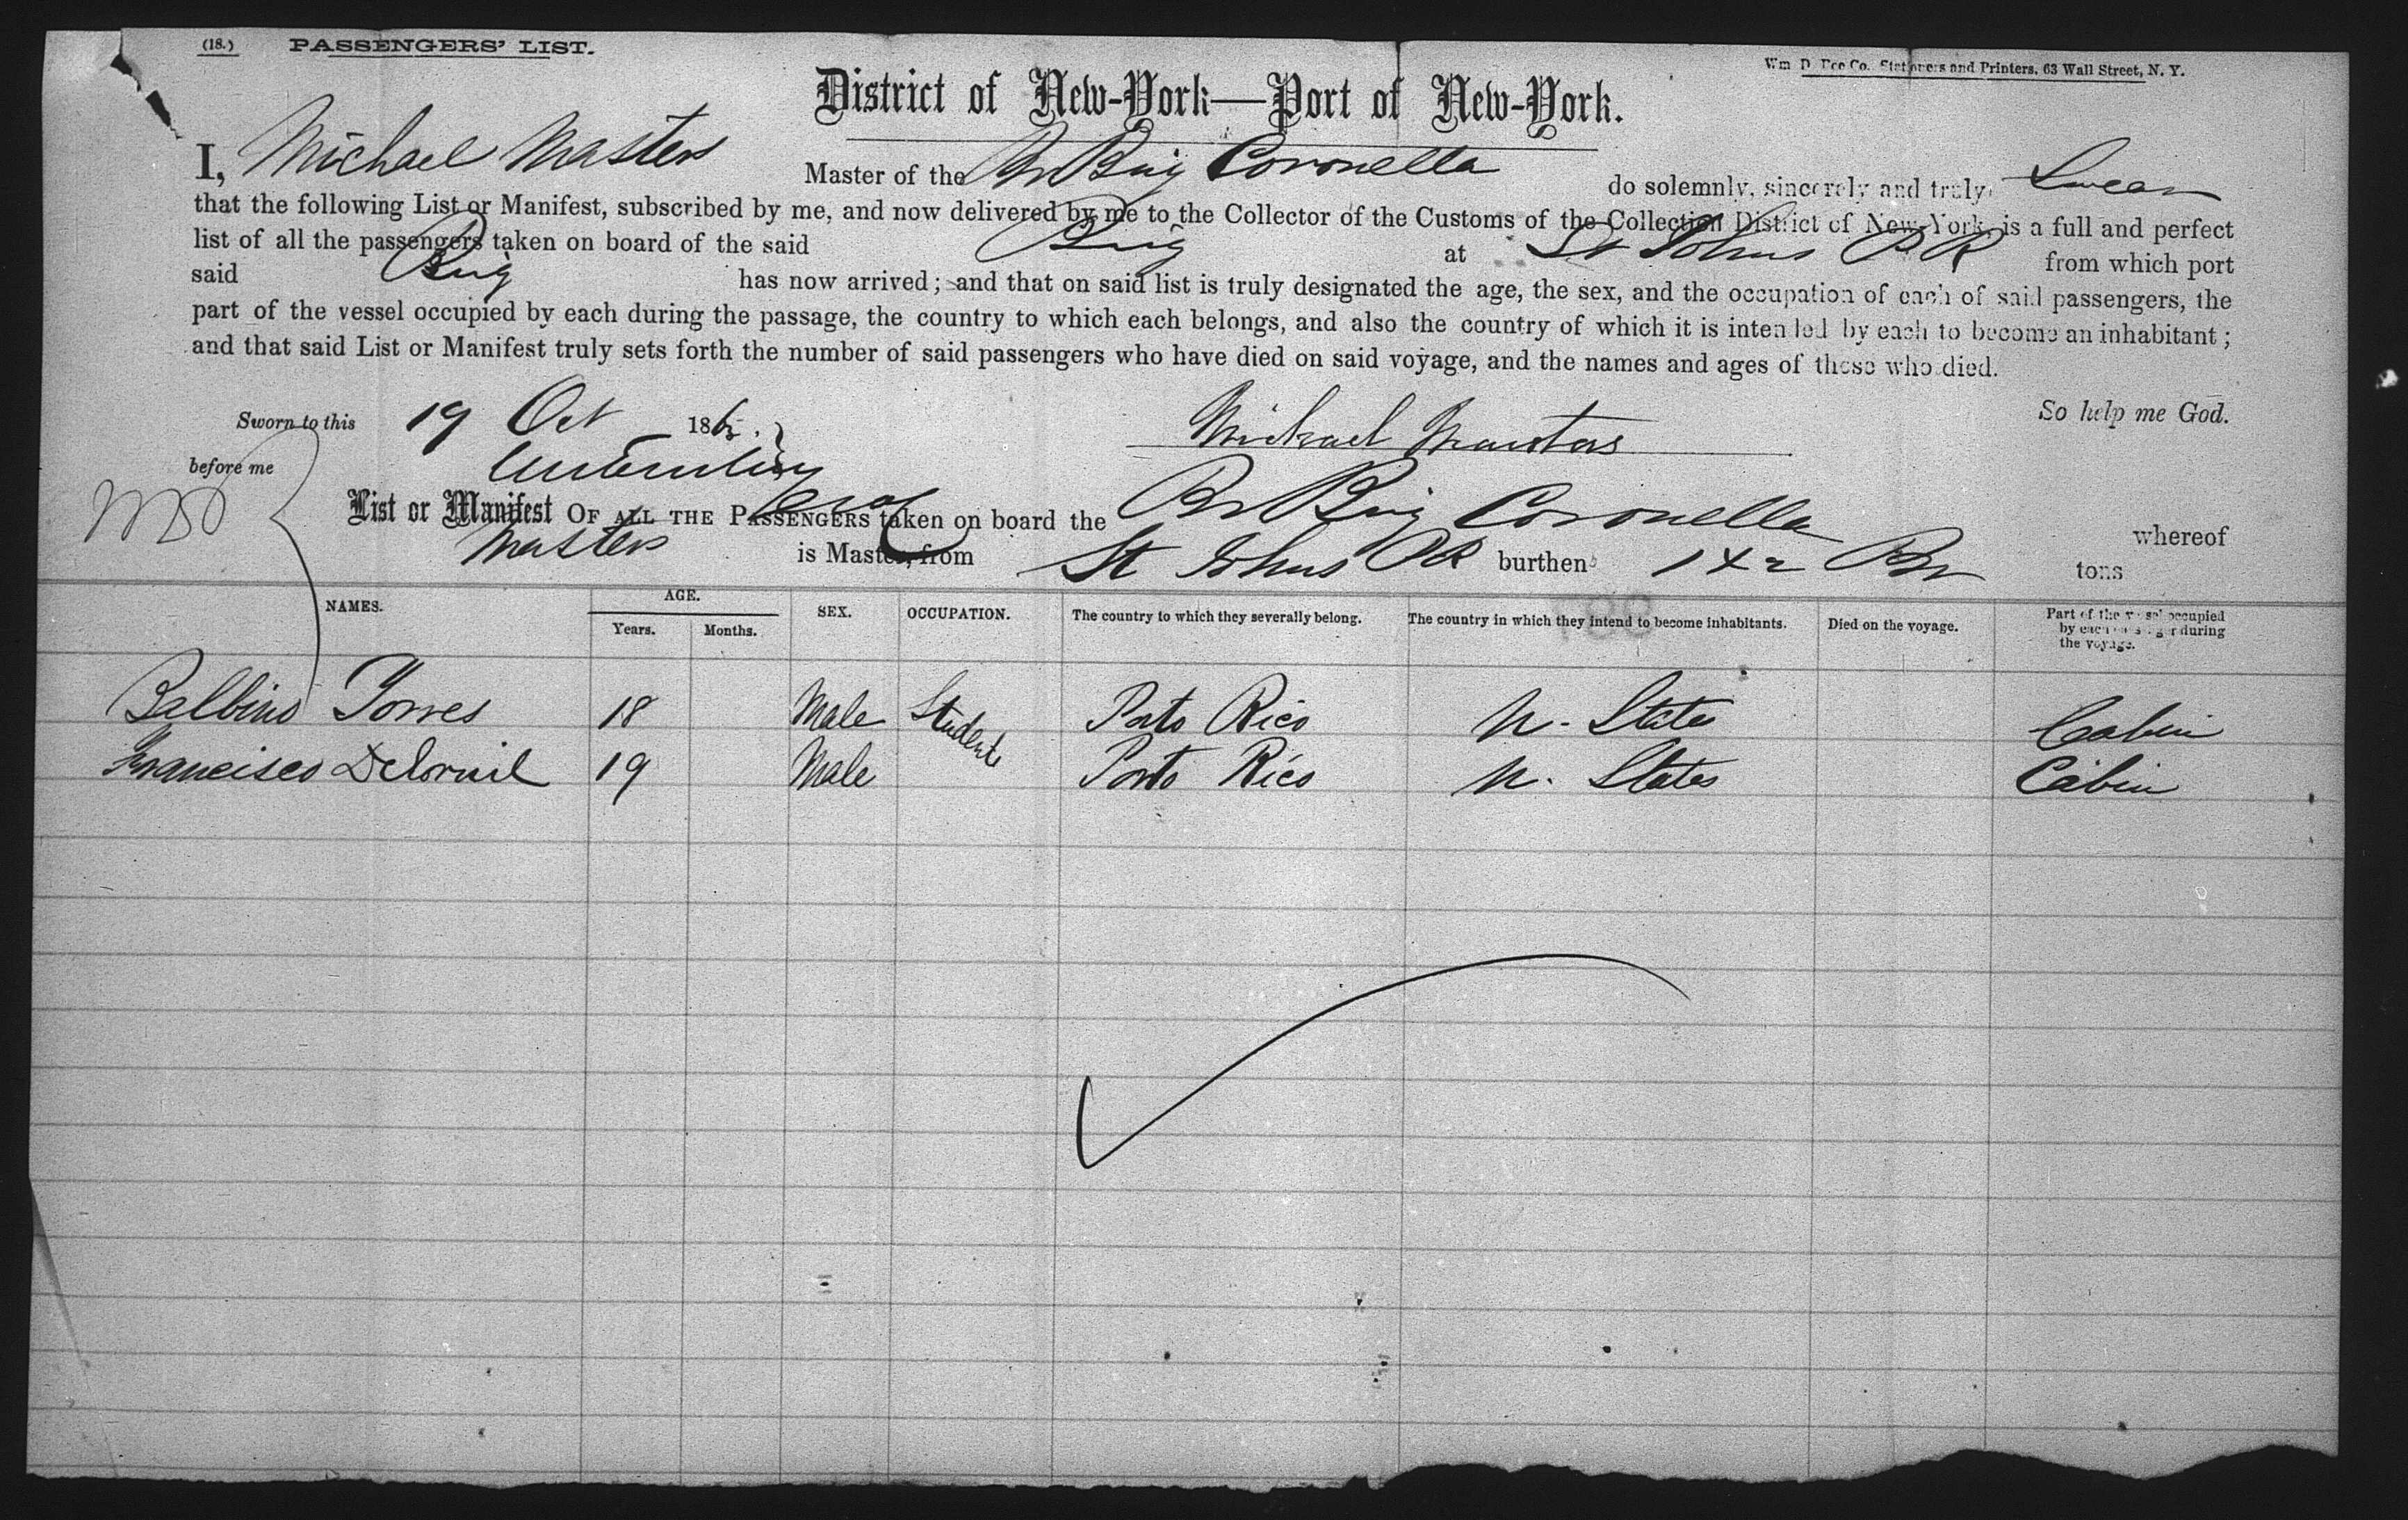 (18.) PASSENGERS' LIST.
Wm. D. Roe Co. Stationers and Printers, 63 Wall Street, N. Y.
District of New-York—Port of New-York.
I, Michael Masters Master of the Br Brig Coronella do solemnly, sincerely and truly Swear
that the following List or Manifest, subscribed by me, and now delivered by me to the Collector of the Customs of the Collection District of New-York, is a full and perfect
list of all the passengers taken on board of the said Brig at St Johns P R from which port
said Brig has now arrived; and that on said list is truly designated the age, the sex, and the occupation of each of said passengers, the
part of the vessel occupied by each during the passage, the country to which each belongs, and also the country of which it is intended by each to become an inhabitant;
and that said List or Manifest truly sets forth the number of said passengers who have died on said voyage, and the names and ages of those who died.
So help me God.
Sworn to this 19 Oct 186
Michael Masters
before me
List or Manifest OF ALL THE PASSENGERS taken on board the Br Brig Coronella whereof
Masters is Master, from St Johns PR burthen 142 tons
NAMES. AGE. Years. Months. SEX. OCCUPATION. The country to which they severally belong. The country in which they intend to become inhabitants. Died on the voyage. Part of the vessel occupied by each passenger during the voyage.
Balbino Torres 18 Male Students Porto Rico U. States Cabin
Francisco 19 Male Porto Rico U. States Cabin